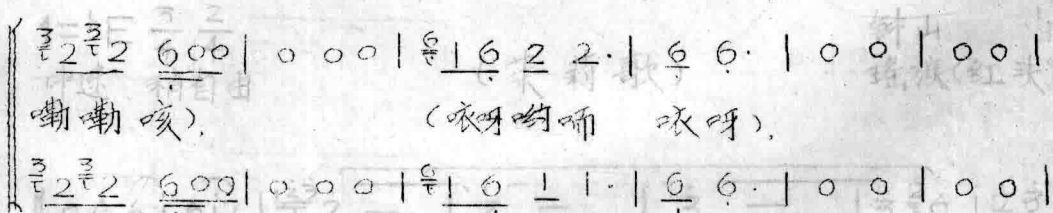 3 2 3 2 6 0 0 | 0 0 0 | 6 1 6 2 2· | 6 6· | 0 0 | 0 0 |
嘞嘞咳). (咴呀哟 咴呀).
3 2 3 2 6 0 0 | 0 0 0 | 6 1 6 1 1· | 6 6· | 0 0 | 0 0 |